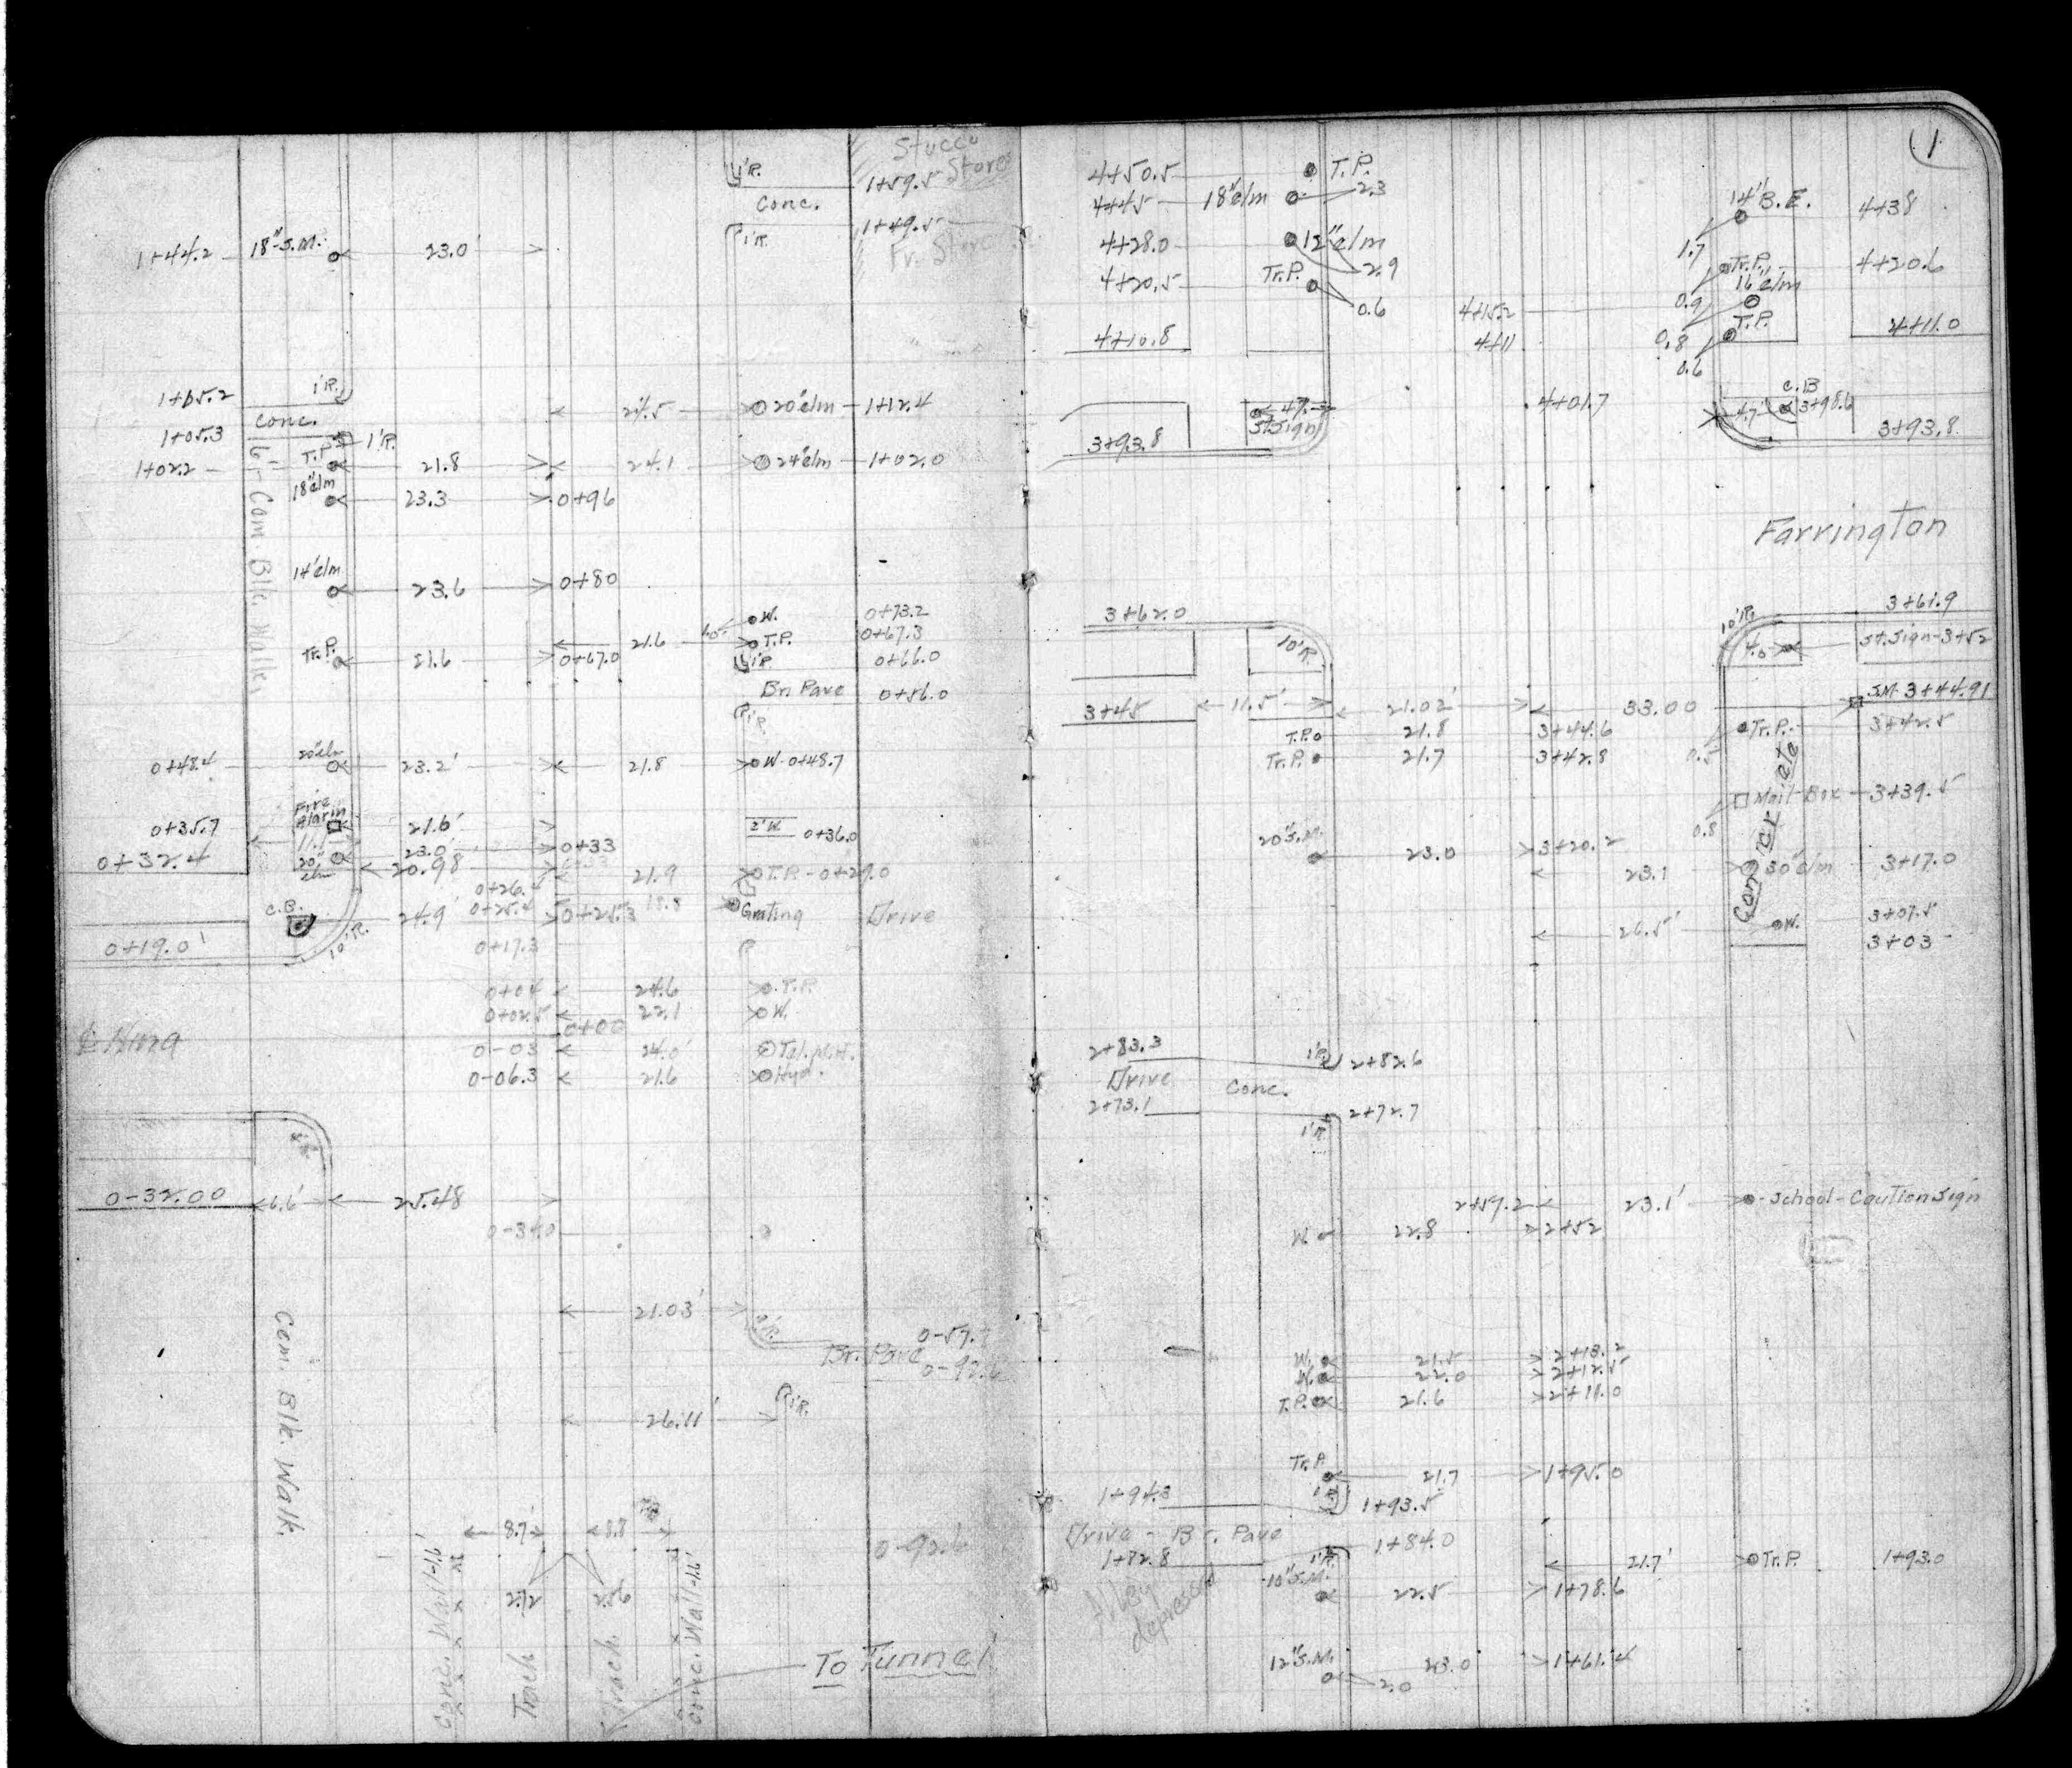 Stucco
Store
1'R.
1+59.5
Conc.
1+49.5
1'R.
Fr. Store
1+44.2 18" S.M. 23.0'
1'R.
Conc.
1+05.3 1'R.
24.5 20" elm 1+12.4
1+02.2 T.P. 21.8 24.1 24" elm 1+02.0
18" elm 23.3 0+96
6'- Cem. Blk. Walk
14" elm 23.6 0+80
W. 0+73.2
21.6 T.P. 0+67.3
Tr.P. 21.6 0+67.0 1'R. 0+66.0
Br. Pave 0+56.0
1'R.
0+48.4 20" elm 23.2' 21.8 W-0+48.7
Fire
Alarm
0+35.7 21.6'
2'W. 0+36.0
0+32.4 20" elm 23.0' 0+33
20.98
0+26.4 21.9 T.P.-0+29.0
C.B. 24.9' 0+25.4 0+25.3 18.8 Grating Drive
0+19.0' 10'R. 0+17.3
0+04 24.6 T.P.
0+02.5 22.1 W.
0+00
0-03 24.0' Tel. M.H.
0-06.3 21.6 Hyd.
0-32.00 6.6' 25.48
0-34.0
21.03'
0-57.
Br. Pave
0-92.6
26.11' 1'R.
Cem. Blk. Walk.
8.7' 8.8
2.72 2.56
0-92.6
Conc. Wall-1.6'
Track
Track
Conc. Wall-1.6'
To Tunnel
1
4+50.5 T.P.
4+45 18" elm 2.3
14" B.E. 4+38
4+28.0 12" elm 1.7
2.9
4+20.5 Tr.P. 0.6
Tr.P. 4+20.6
16" elm
0.9
4+15.2
T.P.
4+10.8 4+11 0.8 4+11.0
0.6
C.B.
4.7 4+01.7 4.7' 3+98.6
St. Sign
3+93.8 3+93.8
Farrington
3+62.0 10'R. 10'R. 3+61.9
4.0 St. Sign-3+52
3+45 11.5' 21.02' 33.00 S.M. 3+44.91
T.P. 21.8 3+44.6
Tr.P. 21.7 3+42.8 0.5 Tr.P. 3+42.5
Mail-Box 3+39.5
0.8
20" S.M. 23.0 3+20.2
23.1 30" elm 3+17.0
Concrete
26.5' W. 3+07.5
3+03
2+83.3 1'R. 2+82.6
Drive Conc.
2+73.1 2+72.7
1'R.
2+59.2 23.1' School-Caution Sign
W. 22.8 2+52
W. 21.5 2+13.2
W. 22.0 2+12.5
T.P. 21.6 2+11.0
Tr.P. 21.7 1+95.0
1+94.3 1'R. 1+93.5
Drive - Br. Pave 1+84.0
1+82.8 1'R. 21.7' Tr.P. 1+93.0
10" S.M. 22.5 1+78.6
Alley
depressed
12" S.M. 23.0 1+61.4
2.0